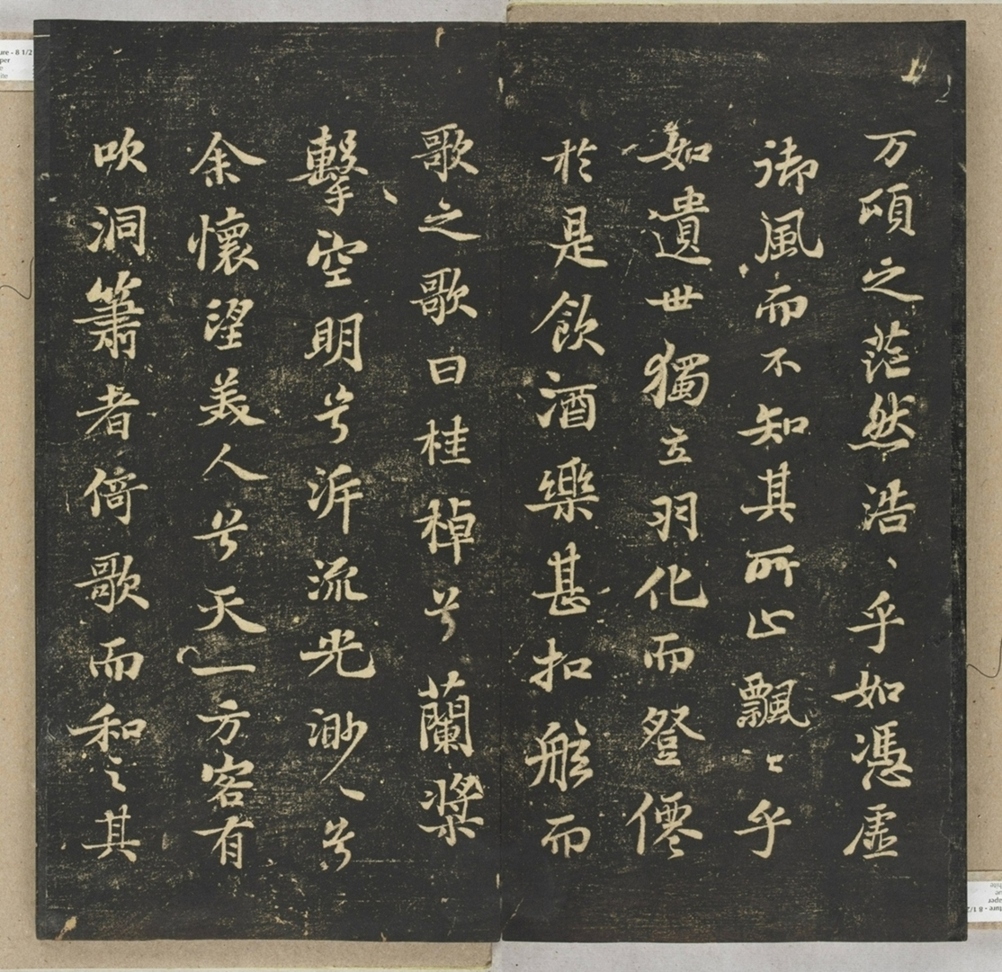 万頃之茫然浩〻乎如馮虛
御風而不知其所止飄〻乎
如遺世獨立羽化而登僊
於是飲酒樂甚扣舷而
歌之歌曰桂棹兮蘭槳
擊空明兮泝流光渺〻兮
余懷望美人兮天一方客有
吹洞簫者倚歌而和之其